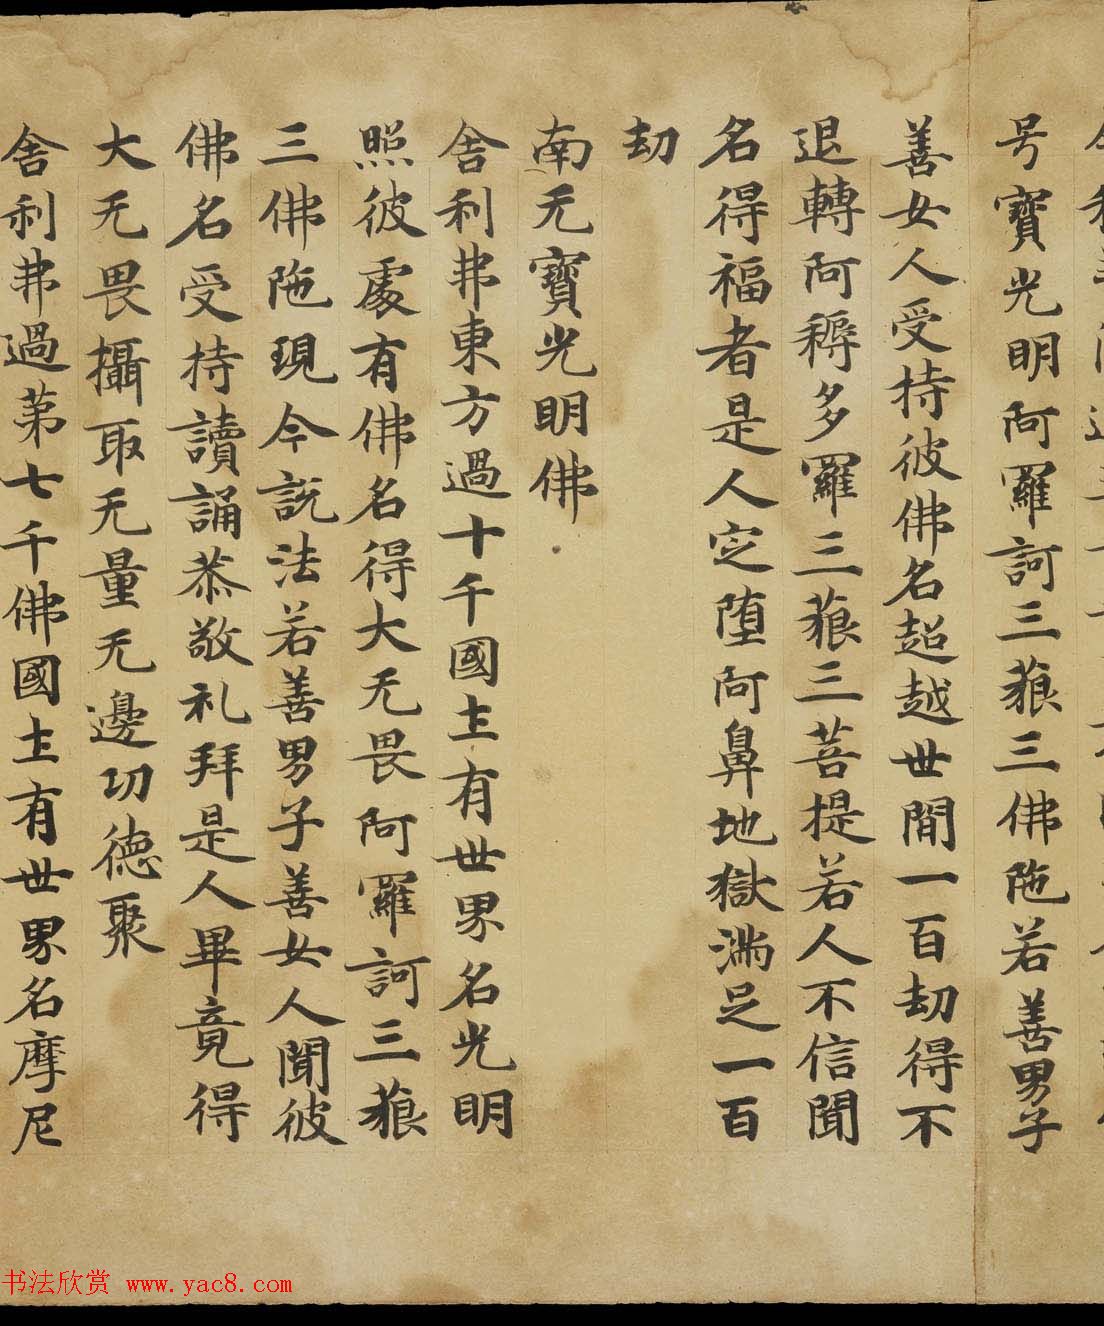 号寶光明阿羅訶三藐三佛陁若善男子
善女人受持彼佛名超越世間一百劫得不
退轉阿耨多羅三藐三菩提若人不信聞
名得福者是人定堕阿鼻地獄滿足一百
劫
南无寶光明佛
舍利弗東方過十千國土有世界名光明
照彼處有佛名得大无畏阿羅訶三藐
三佛陁現今説法若善男子善女人聞彼
佛名受持讀誦恭敬礼拜是人畢竟得
大无畏攝取无量无邊功德聚
舍利弗過第七千佛國土有世界名摩尼
书法欣赏 www.yac8.com